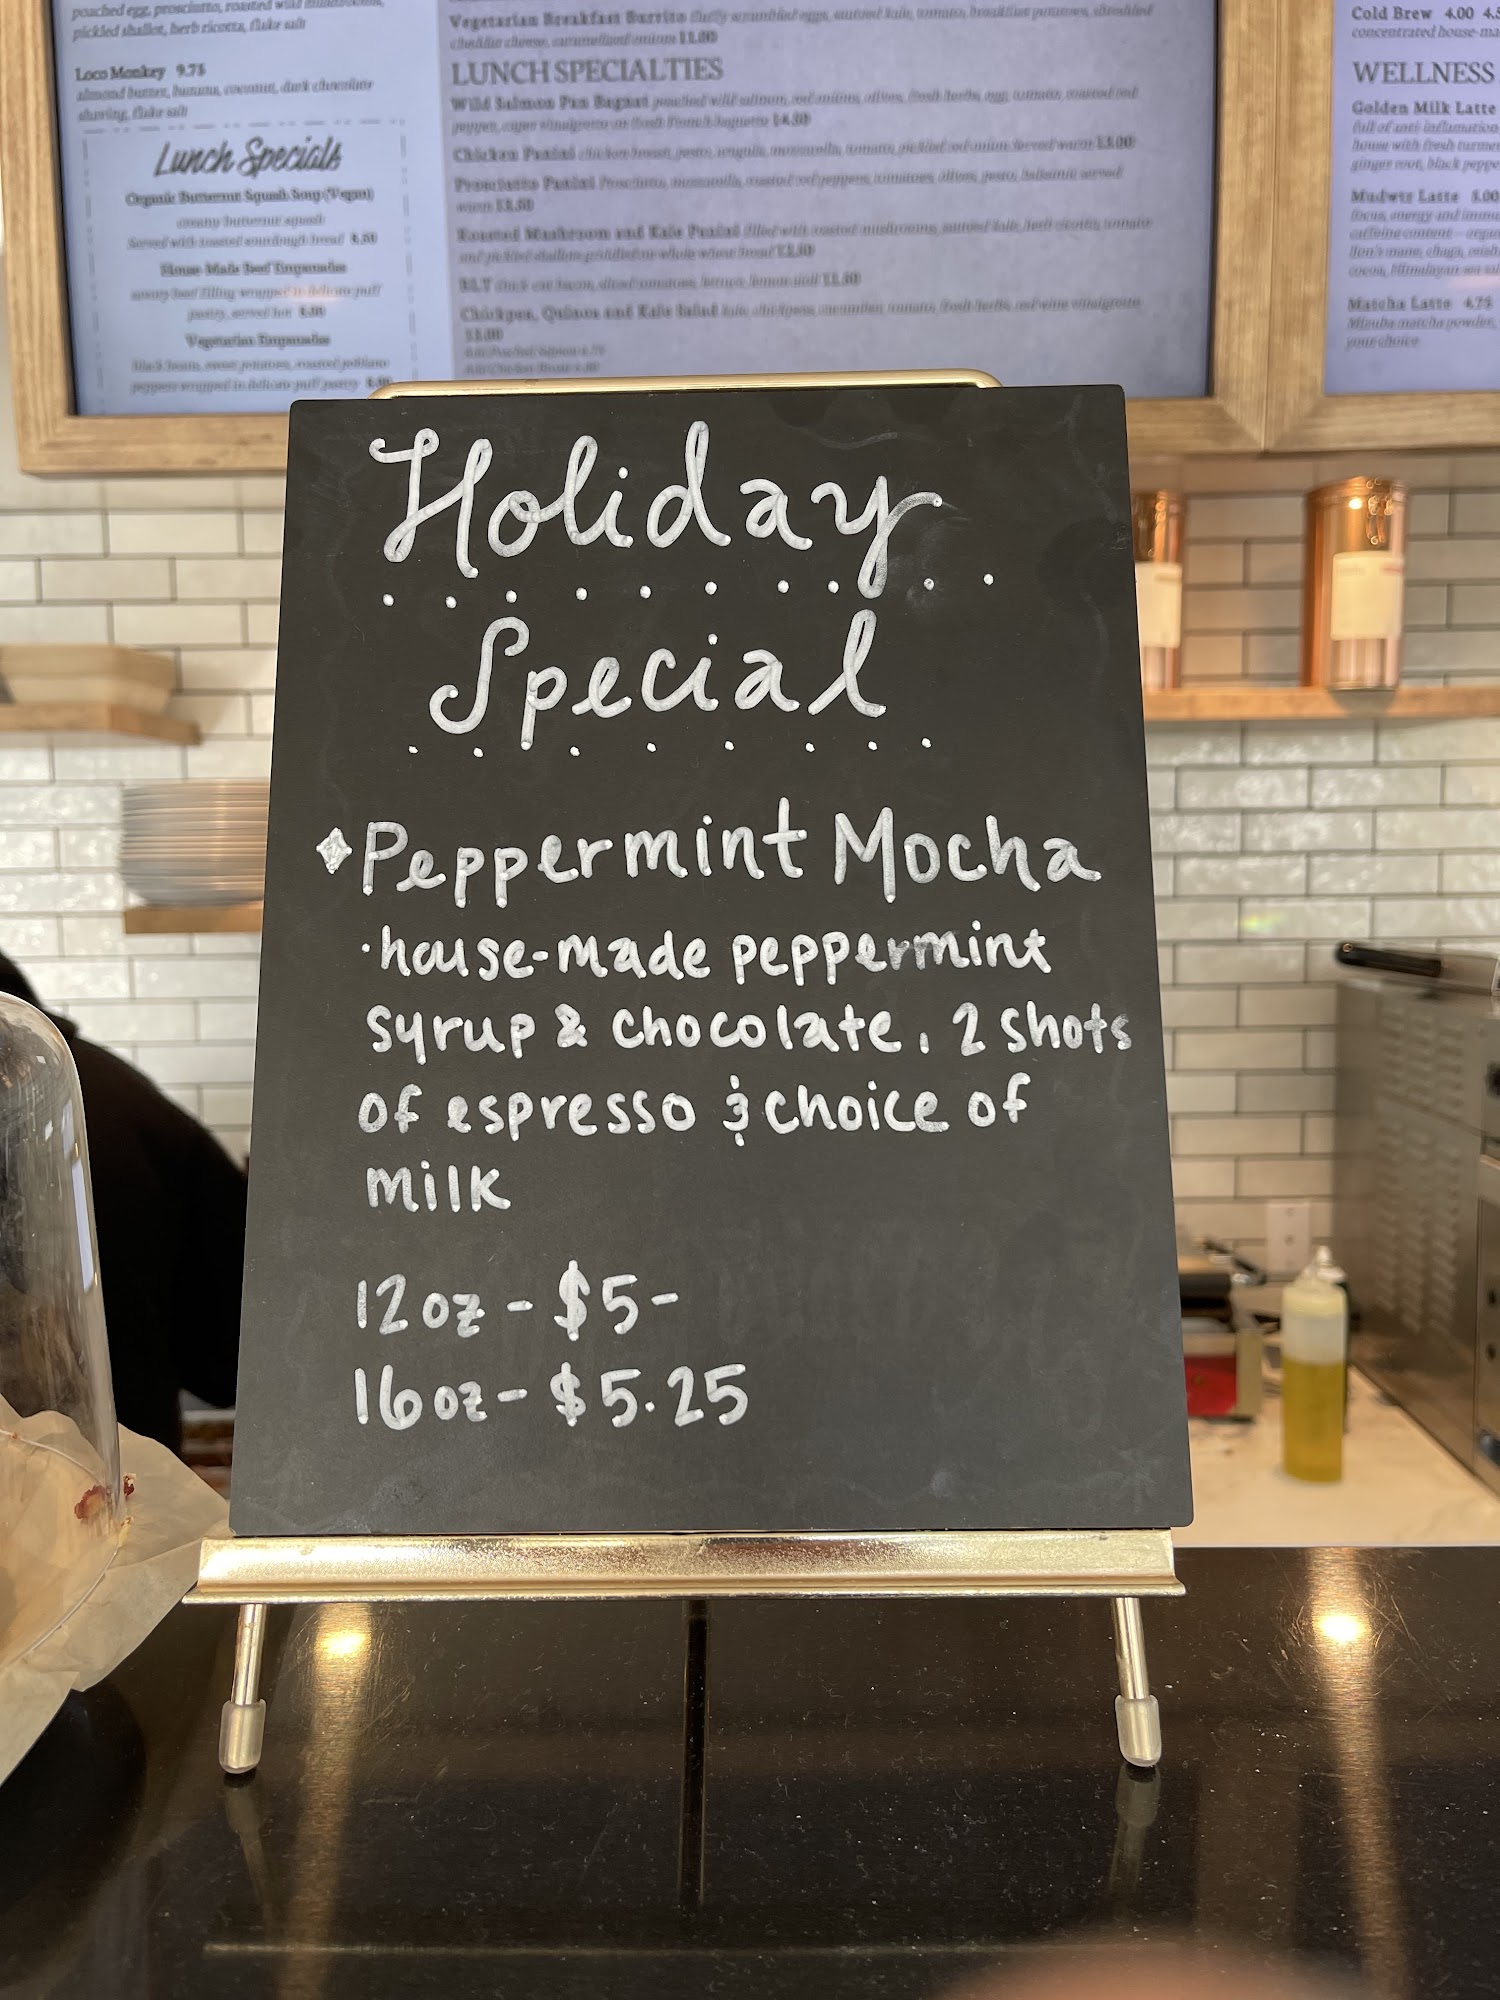 poached egg, prosciutto, roasted wild mushrooms,
pickled shallot, herb ricotta, flake salt
Loco Monkey 9.75
almond butter, banana, coconut, dark chocolate
shaving, flake salt
Lunch Specials
Organic Butternut Squash Soup (Vegan)
creamy butternut squash
Served with toasted sourdough bread 8.50
House-Made Beef Empanadas
savory beef filling wrapped in delicate puff
pastry, served hot
Vegetarian Empanadas
black beans, sweet potatoes, roasted poblano
peppers wrapped in delicate puff pastry
Vegetarian Breakfast Burrito fluffy scrambled eggs, sauteed kale, tomato, breakfast potatoes, shredded
cheddar cheese, caramelized onions 11.00
LUNCH SPECIALTIES
Wild Salmon Pan Bagnat poached wild salmon, red onions, olives, fresh herbs, egg, tomato, roasted red
pepper, caper vinaigrette on fresh French baguette 14.50
Chicken Panini chicken breast, pesto, arugula, mozzarella, tomato, pickled red onion Served warm 13.00
Prosciutto Panini Prosciutto, mozzarella, roasted red peppers, tomatoes, olives, pesto, balsamic served
warm
Roasted Mushroom and Kale Panini filled with roasted mushrooms, sauteed kale, herb ricotta, tomato
and pickled shallots griddled on whole wheat bread 12.50
BLT thick cut bacon, sliced tomatoes, lettuce, lemon aioli 11.50
Chickpea, Quinoa and Kale Salad kale, chickpeas, cucumber, tomato, fresh herbs, red wine vinaigrette
Cold Brew 4.00
concentrated house-ma
WELLNESS
Golden Milk Latte
full of anti-inflammation
house with fresh turme
ginger root, black peppe
Mudwtr Latte 5.00
focus, energy and immu
caffeine content - orga
lion's mane, chaga, reish
cocoa, Himalayan sea sal
Matcha Latte 4.75
Mizuba matcha powder,
your choice
Holiday
Special
Peppermint Mocha
·house-made peppermint
syrup & chocolate, 2 shots
of espresso & choice of
milk
12oz - $5-
16oz - $5.25